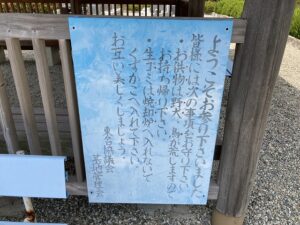 ようこそお参り下さいました
皆様には次の事をお守り下さい
・お供物は野犬、鳥が荒しますので
お持ち帰り下さい
・生ゴミは焼却炉へ入れないで
くずかごへ入れて下さい。
お互い美しくしましょう。
墓地管理会